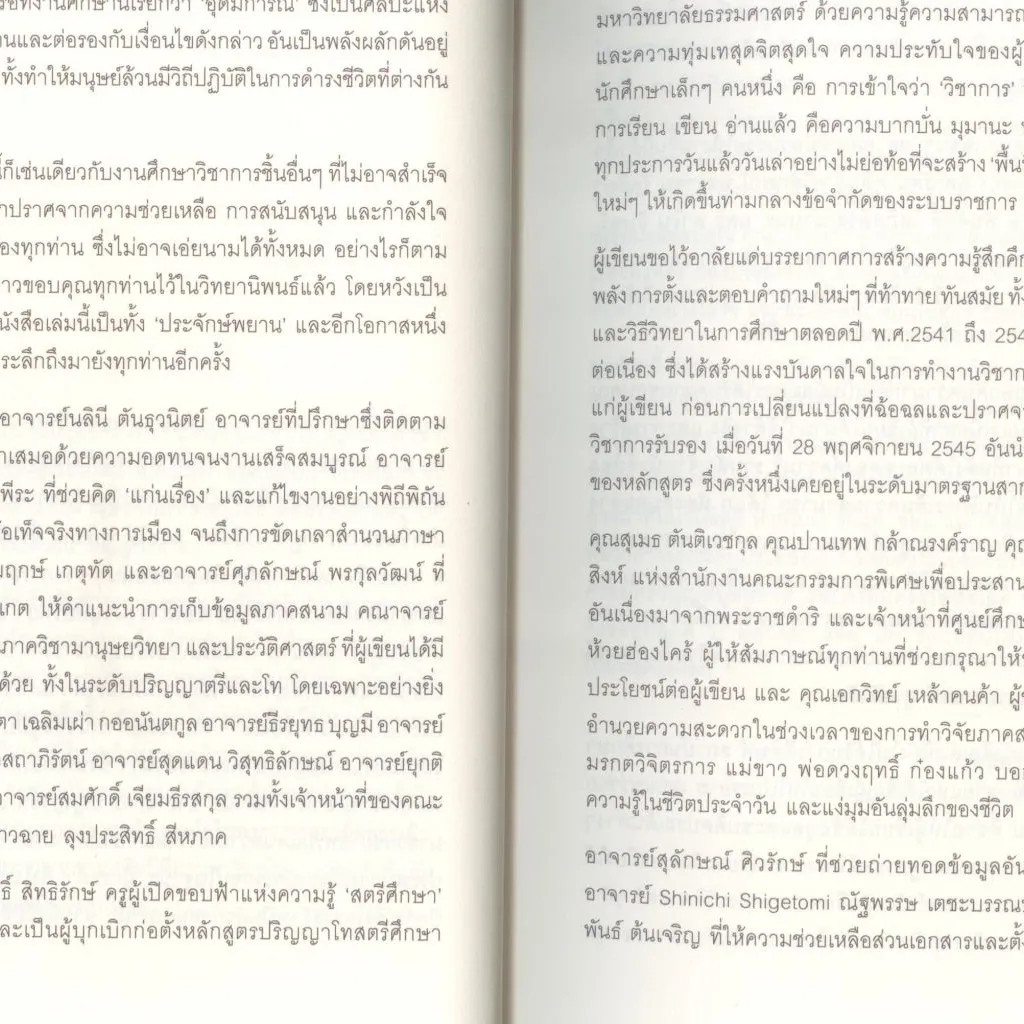 งานศึกษานี้เรียกว่า 'อุดมการณ์' ซึ่งเป็นศิลปะแห่ง
และต่อรองกับเงื่อนไขดังกล่าว อันเป็นพลังผลักดันอยู่
ทั้งทำให้มนุษย์ล้วนมีวิถีปฏิบัติในการดำรงชีวิตที่ต่างกัน
ก็เช่นเดียวกับงานศึกษาวิชาการชิ้นอื่นๆ ที่ไม่อาจสำเร็จ
ปราศจากความช่วยเหลือ การสนับสนุน และกำลังใจ
องทุกท่าน ซึ่งไม่อาจเอ่ยนามได้ทั้งหมด อย่างไรก็ตาม
าวขอบคุณทุกท่านไว้ในวิทยานิพนธ์แล้ว โดยหวังเป็น
นังสือเล่มนี้เป็นทั้ง 'ประจักษ์พยาน' และอีกโอกาสหนึ่ง
ระลึกถึงมายังทุกท่านอีกครั้ง
อาจารย์นลินี ตันธุวนิตย์ อาจารย์ที่ปรึกษาซึ่งติดตาม
าเสมอด้วยความอดทนจนงานเสร็จสมบูรณ์ อาจารย์
พีระ ที่ช่วยคิด 'แก่นเรื่อง' และแก้ไขงานอย่างพิถีพิถัน
อเท็จจริงทางการเมือง จนถึงการขัดเกลาสำนวนภาษา
มฤกษ์ เกตุทัต และอาจารย์ศุภลักษณ์ พรกุลวัฒน์ ที่
เกต ให้คำแนะนำการเก็บข้อมูลภาคสนาม คณาจารย์
ภาควิชามานุษยวิทยา และประวัติศาสตร์ ที่ผู้เขียนได้มี
ด้วย ทั้งในระดับปริญญาตรีและโท โดยเฉพาะอย่างยิ่ง
ตา เฉลิมเผ่า กออนันตกูล อาจารย์ธีรยุทธ บุญมี อาจารย์
สถาภิรัตน์ อาจารย์สุดแดน วิสุทธิลักษณ์ อาจารย์ยุกติ
าจารย์สมศักดิ์ เจียมธีรสกุล รวมทั้งเจ้าหน้าที่ของคณะ
าวฉาย ลุงประสิทธิ์ สีหภาค
ธิ์ สิทธิรักษ์ ครูผู้เปิดขอบฟ้าแห่งความรู้ 'สตรีศึกษา'
ละเป็นผู้บุกเบิกก่อตั้งหลักสูตรปริญญาโทสตรีศึกษา
มหาวิทยาลัยธรรมศาสตร์ ด้วยความรู้ความสามารถ
และความทุ่มเทสุดจิตสุดใจ ความประทับใจของผู้
นักศึกษาเล็กๆ คนหนึ่ง คือ การเข้าใจว่า 'วิชาการ'
การเรียน เขียน อ่านแล้ว คือความบากบั่น มุมานะ
ทุกประการวันแล้ววันเล่าอย่างไม่ย่อท้อที่จะสร้าง 'พื้นที่
ใหม่ๆ ให้เกิดขึ้นท่ามกลางข้อจำกัดของระบบราชการ
ผู้เขียนขอไว้อาลัยแด่บรรยากาศการสร้างความรู้สึกคึก
พลัง การตั้งและตอบคำถามใหม่ๆ ที่ท้าทาย ทันสมัย ทั้
และวิธีวิทยาในการศึกษาตลอดปี พ.ศ.2541 ถึง 254
ต่อเนื่อง ซึ่งได้สร้างแรงบันดาลใจในการทำงานวิชาก
แก่ผู้เขียน ก่อนการเปลี่ยนแปลงที่ฉ้อฉลและปราศจา
วิชาการรับรอง เมื่อวันที่ 28 พฤศจิกายน 2545 อันนำ
ของหลักสูตร ซึ่งครั้งหนึ่งเคยอยู่ในระดับมาตรฐานสาก
คุณสุเมธ ตันติเวชกุล คุณปานเทพ กล้าณรงค์ราญ คุณ
สิงห์ แห่งสำนักงานคณะกรรมการพิเศษเพื่อประสาน
อันเนื่องมาจากพระราชดำริ และเจ้าหน้าที่ศูนย์ศึกษ
ห้วยฮ่องไคร้ ผู้ให้สัมภาษณ์ทุกท่านที่ช่วยกรุณาให้ข
ประโยชน์ต่อผู้เขียน และ คุณเอกวิทย์ เหล้าคนค้า ผู้
อำนวยความสะดวกในช่วงเวลาของการทำวิจัยภาคส
มรกตวิจิตรการ แม่ขาว พ่อดวงฤทธิ์ ก๋องแก้ว บอก
ความรู้ในชีวิตประจำวัน และแง่มุมอันลุ่มลึกของชีวิต
อาจารย์สุลักษณ์ ศิวรักษ์ ที่ช่วยถ่ายทอดข้อมูลอัน
อาจารย์ Shinichi Shigetomi ณัฐพรรษ เตชะบรรณ
พันธ์ ต้นเจริญ ที่ให้ความช่วยเหลือส่วนเอกสารและตั้ง